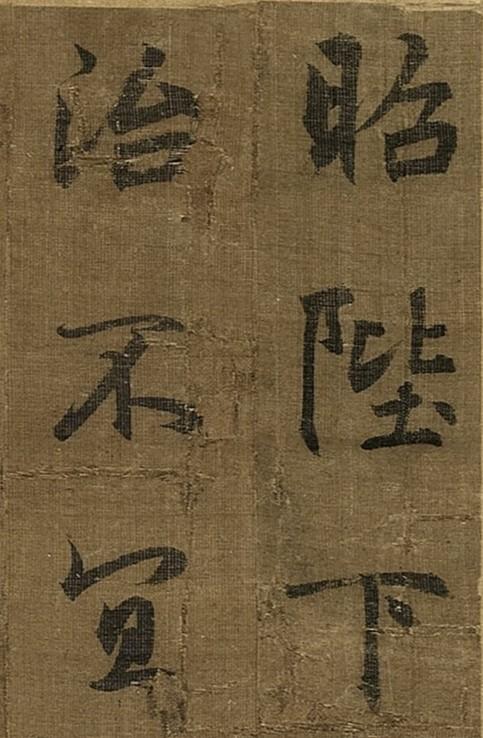 昭陛下
治不宜